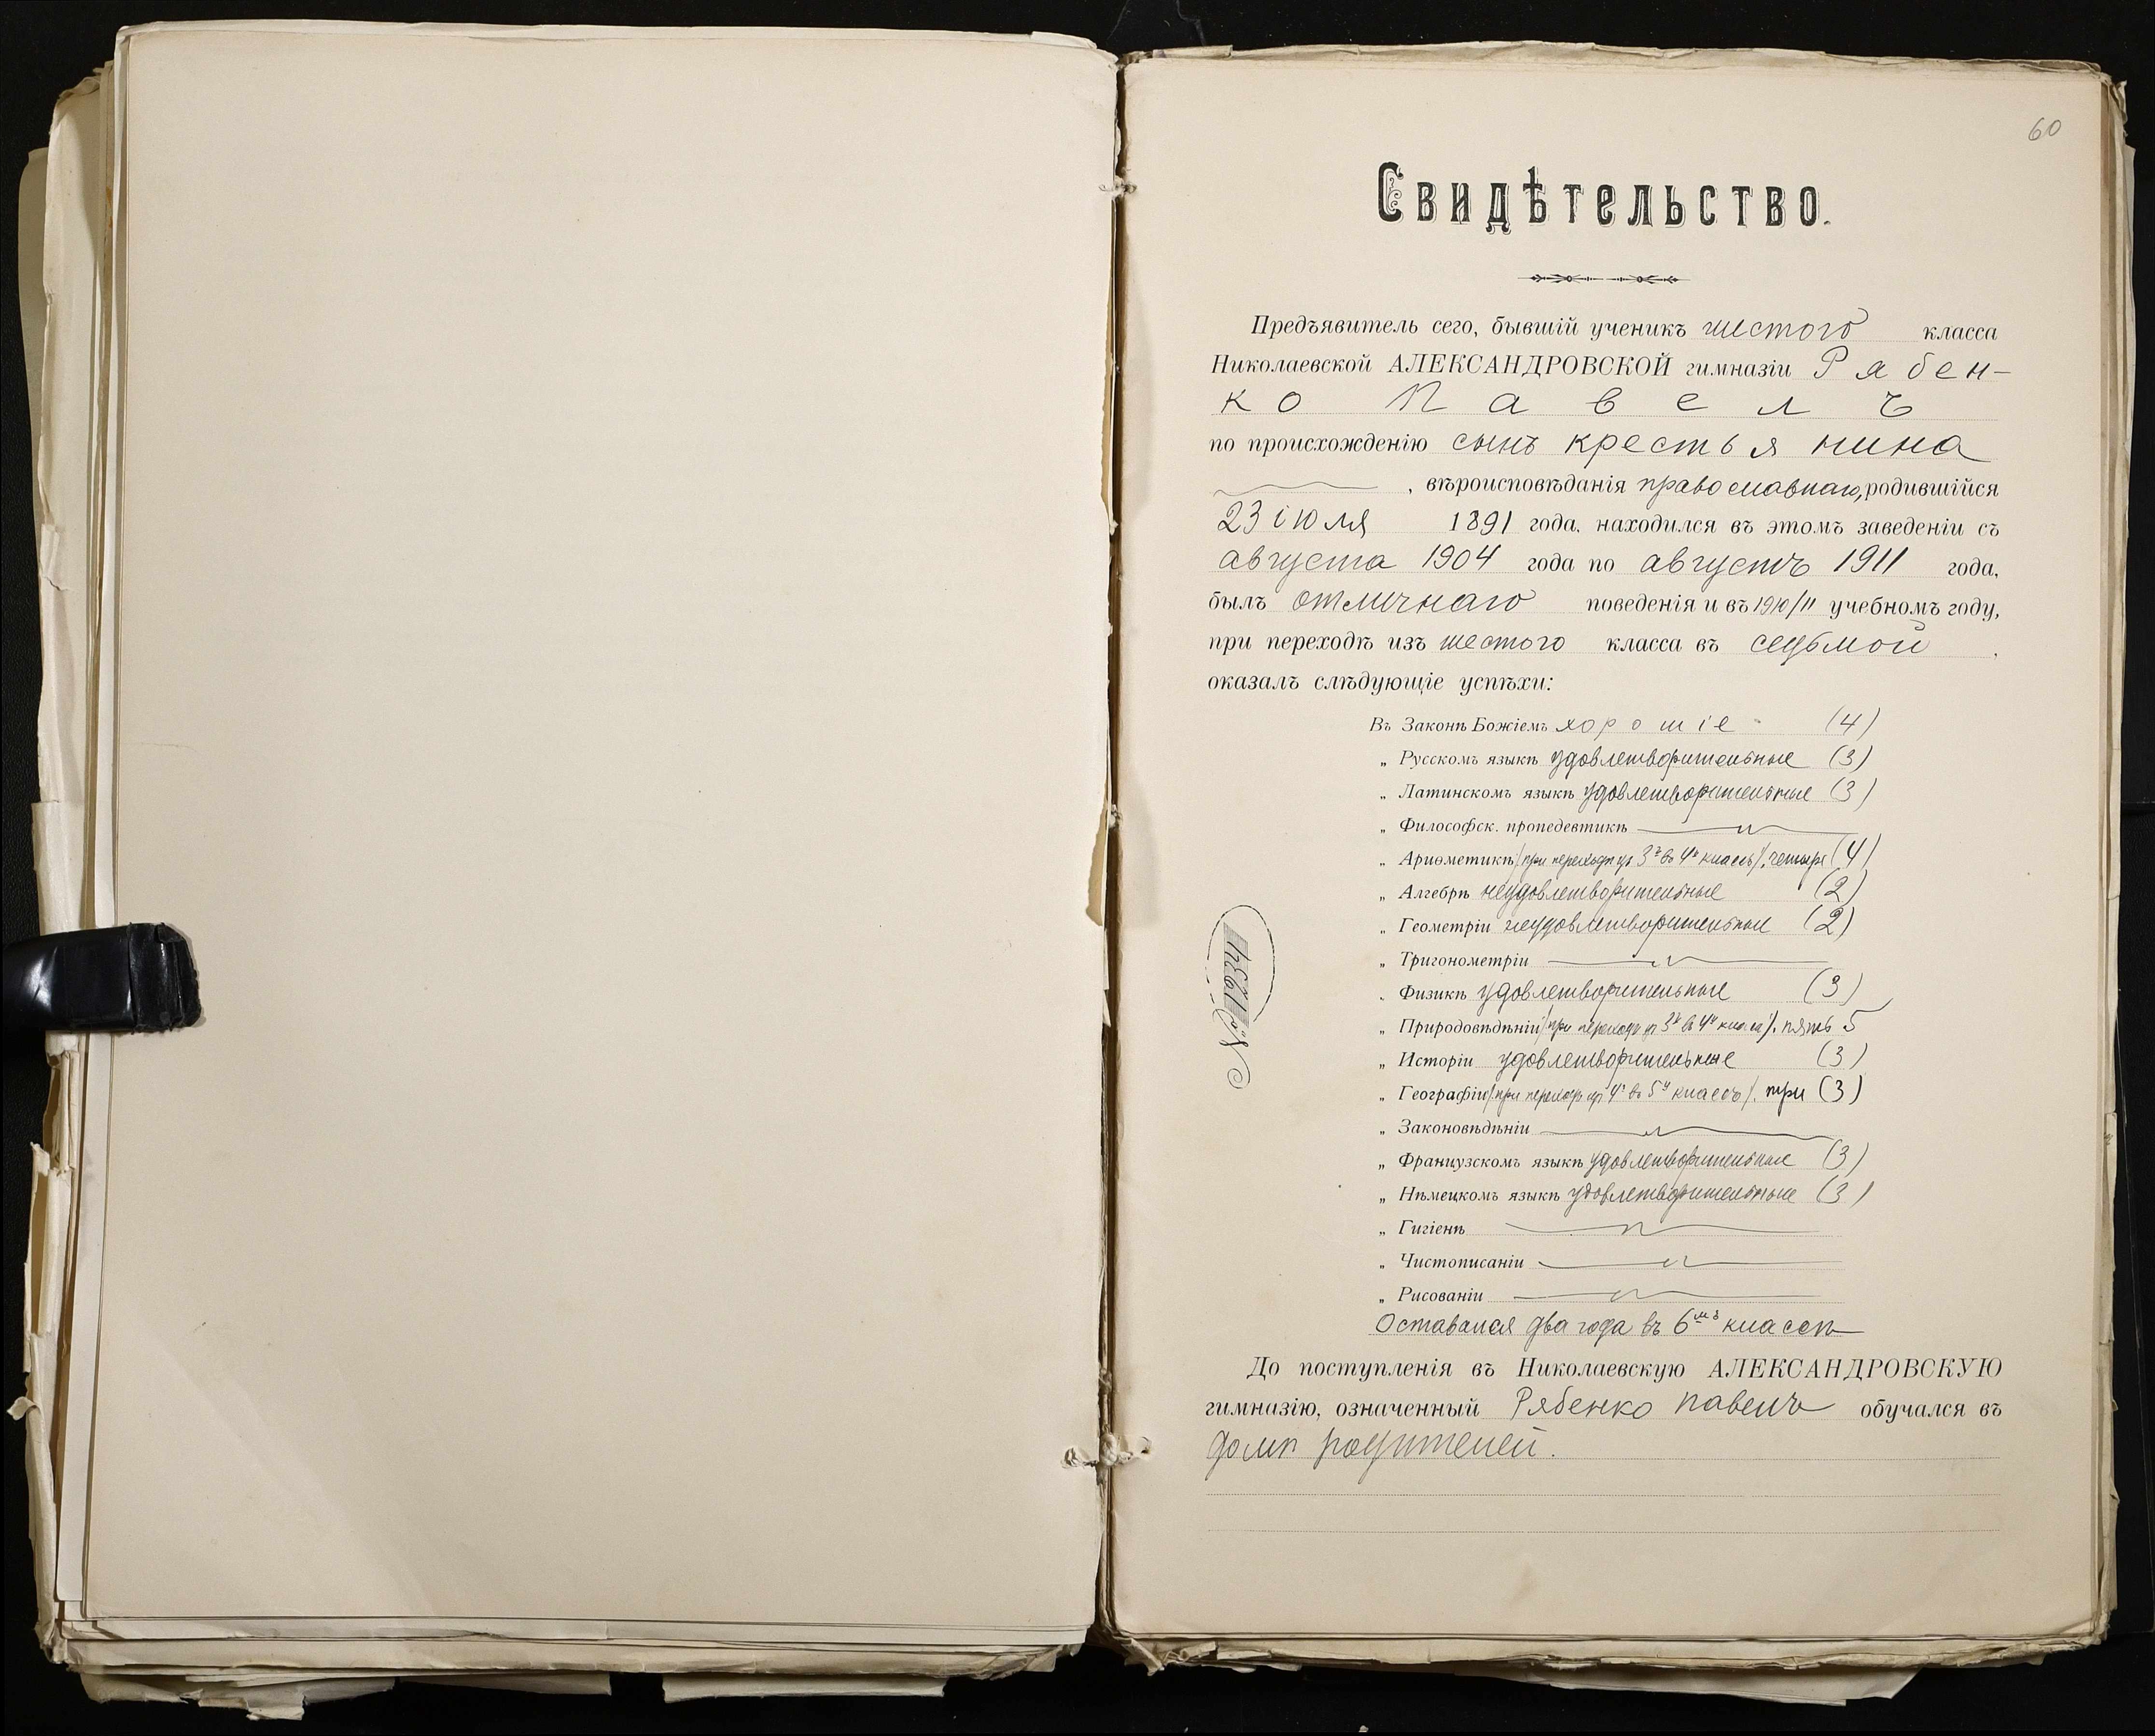 60
Свидѣтельство.
Предъявитель сего, бывшій ученикъ шестого класса
Николаевской АЛЕКСАНДРОВСКОЙ гимназіи Рябен-
ко Павелъ
по происхожденію сынъ крестьянина
, вѣроисповѣданія православнаго, родившійся
23 іюля 1891 года, находился въ этомъ заведеніи съ
августа 1904 года по августъ 1911 года,
былъ отличнаго поведенія и въ 1910/11 учебномъ году,
при переходѣ изъ шестого класса въ седьмой ,
оказалъ слѣдующіе успѣхи:
Въ Законѣ Божіемъ хорошіе (4)
„ Русскомъ языкѣ удовлетворительные (3)
„ Латинскомъ языкѣ удовлетворительные (3)
„ Философск. пропедевтикѣ
„ Ариѳметикѣ /при переходѣ изъ 3го въ 4й классъ/. четыре (4)
„ Алгебрѣ неудовлетворительные (2)
„ Геометріи неудовлетворительные (2)
„ Тригонометріи
„ Физикѣ удовлетворительные (3)
„ Природовѣдѣніи /при переходѣ изъ 3го въ 4й классъ/. пять 5
„ Исторіи удовлетворительные (3)
„ Географіи /при переходѣ изъ 4го въ 5й классъ/. три (3)
„ Законовѣдѣніи
„ Французскомъ языкѣ удовлетворительные (3)
„ Нѣмецкомъ языкѣ удовлетворительные (3)
„ Гигіенѣ
„ Чистописаніи
„ Рисованіи
Оставался два года въ 6мъ классѣ
№ 1234
До поступленія въ Николаевскую АЛЕКСАНДРОВСКУЮ
гимназію, означенный Рябенко Павелъ обучался въ
домѣ родителей.